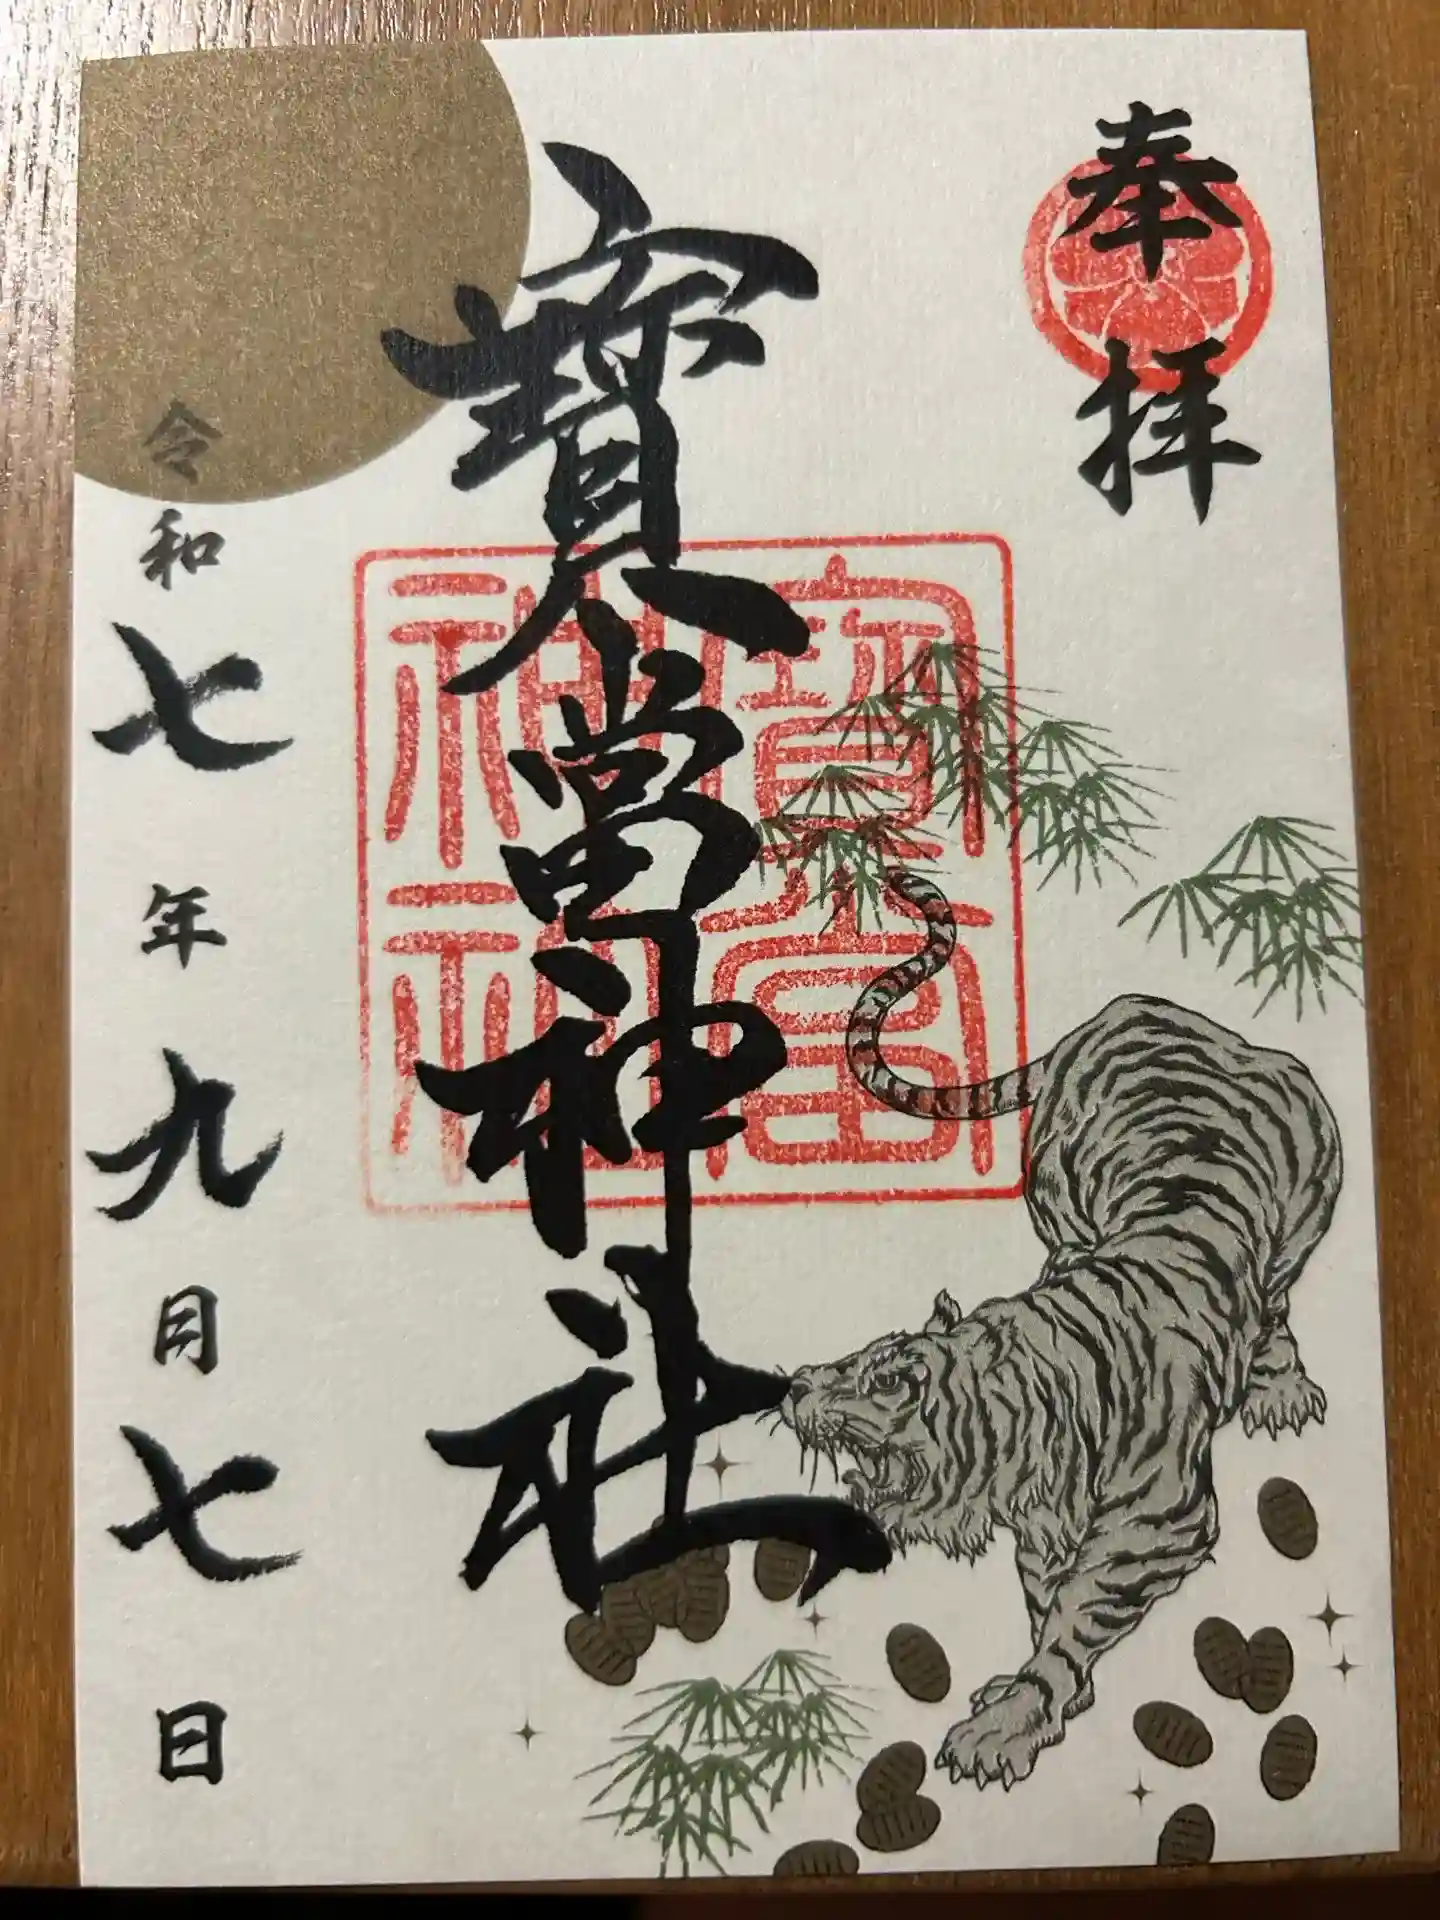 奉拝
寳當神社
寳當神社
令和七年九月七日